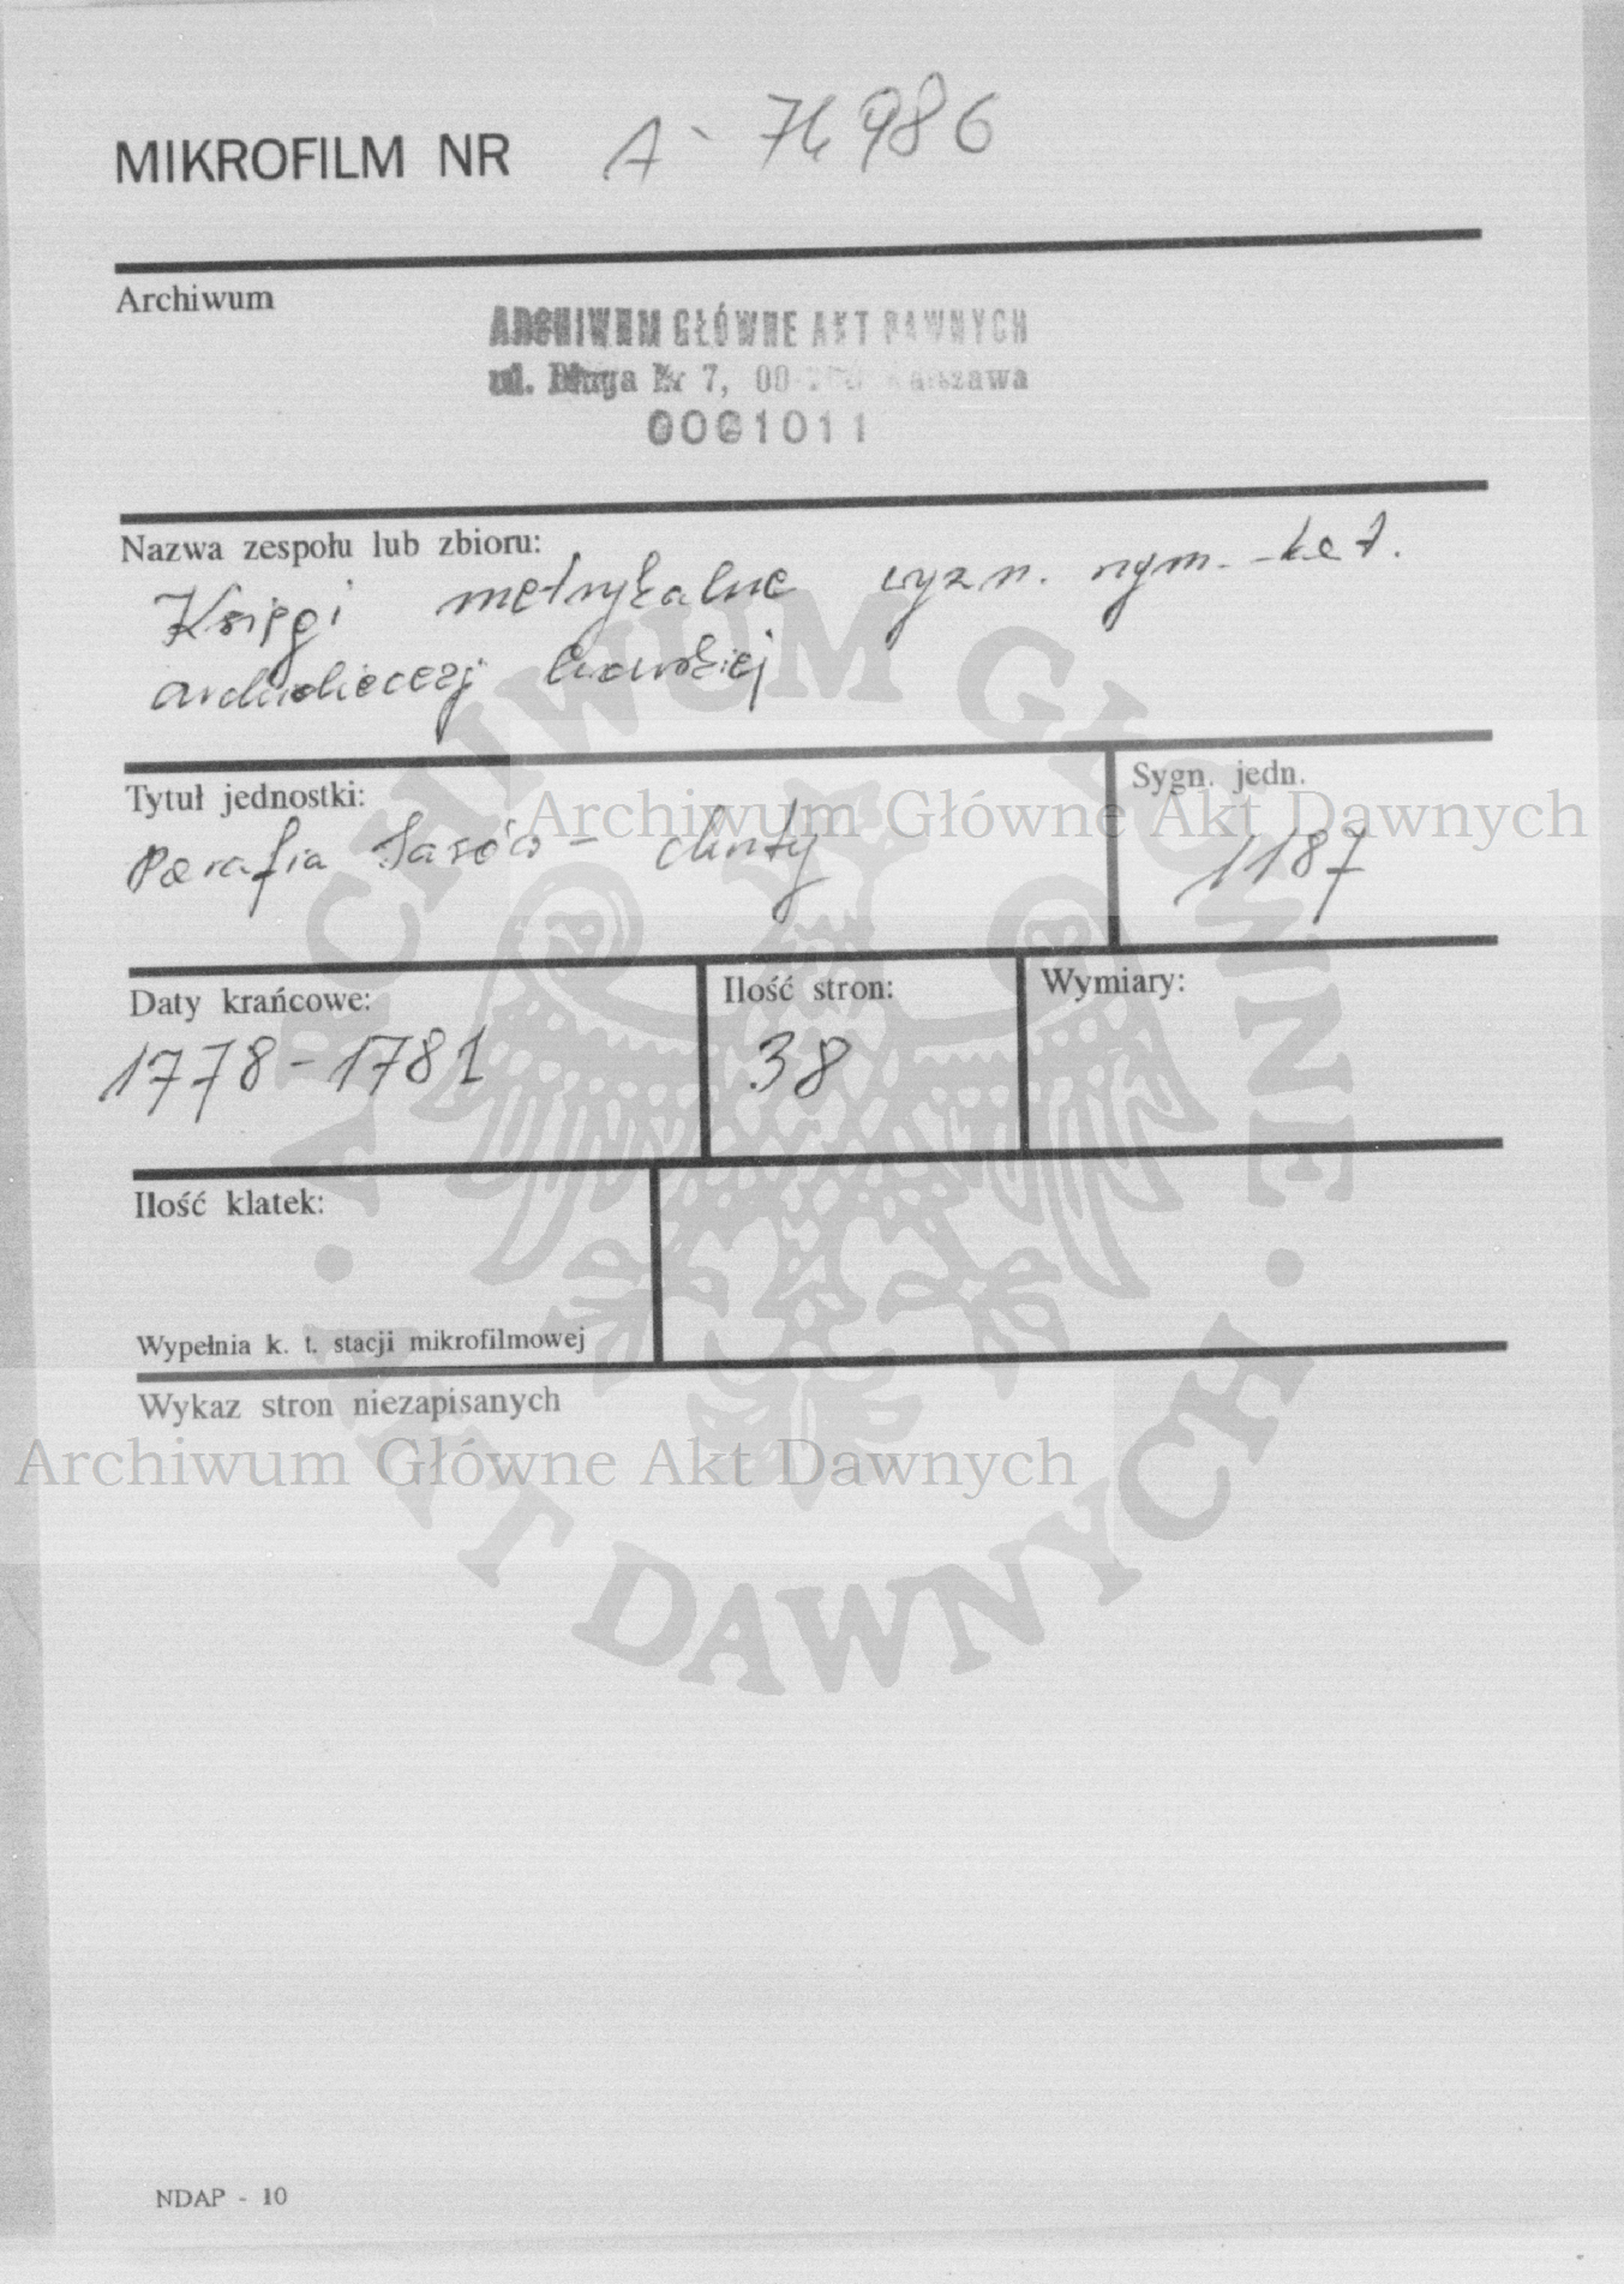 MIKROFILM NR A-74986
Archiwum
ARCHIWUM GŁÓWNE AKT DAWNYCH
ul. Długa Nr 7, 00- Warszawa
0001011
Nazwa zespołu lub zbioru:
Księgi metrykalne wyzn. rzym.-kat.
archidiecezji lwowskiej
Tytuł jednostki:
Parafia Sasów - chrzty
Sygn. jedn.
1187
Daty krańcowe:
1778-1781
Ilość stron:
38
Wymiary:
Ilość klatek:
Wypełnia k. t. stacji mikrofilmowej
Wykaz stron niezapisanych
NDAP - 10
Archiwum Główne Akt Dawnych
Archiwum Główne Akt Dawnych
ARCHIWUM GŁÓWNE
AKT DAWNYCH